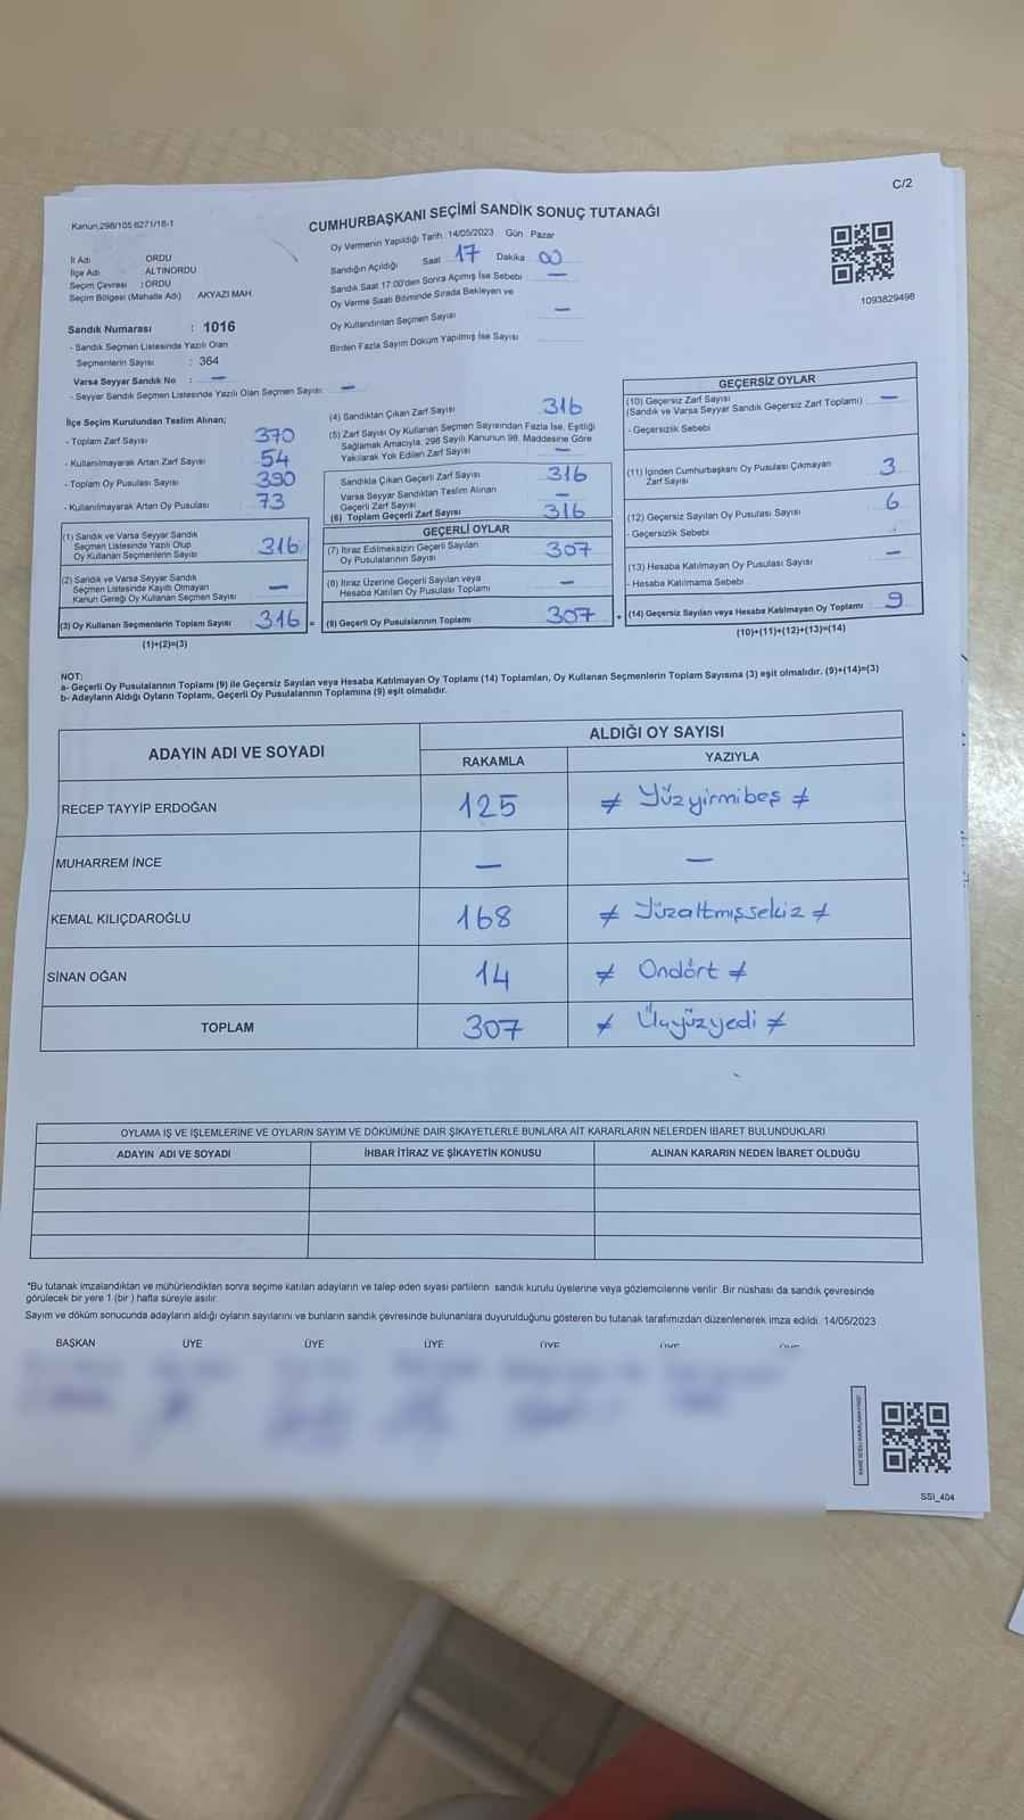 C/2
Kanun,298/105 6271/18-1
CUMHURBAŞKANI SEÇİMİ SANDIK SONUÇ TUTANAĞI
Oy Vermenin Yapıldığı Tarih: 14/05/2023 Gün Pazar
İl Adı ORDU
İlçe Adı ALTINORDU
Seçim Çevresi : ORDU
Seçim Bölgesi (Mahalle Adı) AKYAZI MAH.
Sandığın Açıldığı Saat 17 Dakika 00
Sandık Saat 17:00'den Sonra Açılmış İse Sebebi —
Oy Verme Saati Bitiminde Sırada Bekleyen ve
Oy Kullandırılan Seçmen Sayısı —
Birden Fazla Sayım Döküm Yapılmış İse Sayısı
1093829498
Sandık Numarası : 1016
- Sandık Seçmen Listesinde Yazılı Olan
Seçmenlerin Sayısı : 364
Varsa Seyyar Sandık No : —
- Seyyar Sandık Seçmen Listesinde Yazılı Olan Seçmen Sayısı: —
İlçe Seçim Kurulundan Teslim Alınan;
- Toplam Zarf Sayısı 370
- Kullanılmayarak Artan Zarf Sayısı 54
- Toplam Oy Pusulası Sayısı 390
- Kullanılmayarak Artan Oy Pusulası 73
(1) Sandık ve Varsa Seyyar Sandık
Seçmen Listesinde Yazılı Olup
Oy Kullanan Seçmenlerin Sayısı 316
(2) Sandık ve Varsa Seyyar Sandık
Seçmen Listesinde Kayıtlı Olmayan
Kanun Gereği Oy Kullanan Seçmen Sayısı —
(3) Oy Kullanan Seçmenlerin Toplam Sayısı 316 =
(1)+(2)=(3)
(4) Sandıktan Çıkan Zarf Sayısı 316
(5) Zarf Sayısı Oy Kullanan Seçmen Sayısından Fazla İse, Eşitliği
Sağlamak Amacıyla, 298 Sayılı Kanunun 98. Maddesine Göre
Yakılarak Yok Edilen Zarf Sayısı —
Sandıkla Çıkan Geçerli Zarf Sayısı 316
Varsa Seyyar Sandıktan Teslim Alınan
Geçerli Zarf Sayısı —
(6) Toplam Geçerli Zarf Sayısı 316
GEÇERLİ OYLAR
(7) İtiraz Edilmeksizin Geçerli Sayılan
Oy Pusulalarının Sayısı 307
(8) İtiraz Üzerine Geçerli Sayılan veya
Hesaba Katılan Oy Pusulası Toplamı —
(9) Geçerli Oy Pusulalarının Toplamı 307 +
GEÇERSİZ OYLAR
(10) Geçersiz Zarf Sayısı —
(Sandık ve Varsa Seyyar Sandık Geçersiz Zarf Toplamı)
- Geçersizlik Sebebi
(11) İçinden Cumhurbaşkanı Oy Pusulası Çıkmayan
Zarf Sayısı 3
(12) Geçersiz Sayılan Oy Pusulası Sayısı 6
- Geçersizlik Sebebi
(13) Hesaba Katılmayan Oy Pusulası Sayısı —
- Hesaba Katılmama Sebebi
(14) Geçersiz Sayılan veya Hesaba Katılmayan Oy Toplamı 9
(10)+(11)+(12)+(13)=(14)
NOT:
a- Geçerli Oy Pusulalarının Toplamı (9) ile Geçersiz Sayılan veya Hesaba Katılmayan Oy Toplamı (14) Toplamları, Oy Kullanan Seçmenlerin Toplam Sayısına (3) eşit olmalıdır. (9)+(14)=(3)
b- Adayların Aldığı Oyların Toplamı, Geçerli Oy Pusulalarının Toplamına (9) eşit olmalıdır.
ADAYIN ADI VE SOYADI ALDIĞI OY SAYISI
RAKAMLA YAZIYLA
RECEP TAYYİP ERDOĞAN 125 ≠ Yüzyirmibeş ≠
MUHARREM İNCE — —
KEMAL KILIÇDAROĞLU 168 ≠ Yüzaltmışsekiz ≠
SİNAN OĞAN 14 ≠ Ondört ≠
TOPLAM 307 ≠ Üçyüzyedi ≠
OYLAMA İŞ VE İŞLEMLERİNE VE OYLARIN SAYIM VE DÖKÜMÜNE DAİR ŞİKAYETLERLE BUNLARA AİT KARARLARIN NELERDEN İBARET BULUNDUKLARI
ADAYIN ADI VE SOYADI İHBAR İTİRAZ VE ŞİKAYETİN KONUSU ALINAN KARARIN NEDEN İBARET OLDUĞU
*Bu tutanak imzalandıktan ve mühürlendikten sonra seçime katılan adayların ve talep eden siyasi partilerin sandık kurulu üyelerine veya gözlemcilerine verilir. Bir nüshası da sandık çevresinde
görülecek bir yere 1 (bir ) hafta süreyle asılır.
Sayım ve döküm sonucunda adayların aldığı oyların sayılarını ve bunların sandık çevresinde bulunanlara duyurulduğunu gösteren bu tutanak tarafımızdan düzenlenerek imza edildi. 14/05/2023
BAŞKAN ÜYE ÜYE ÜYE ÜYE
SSI_404